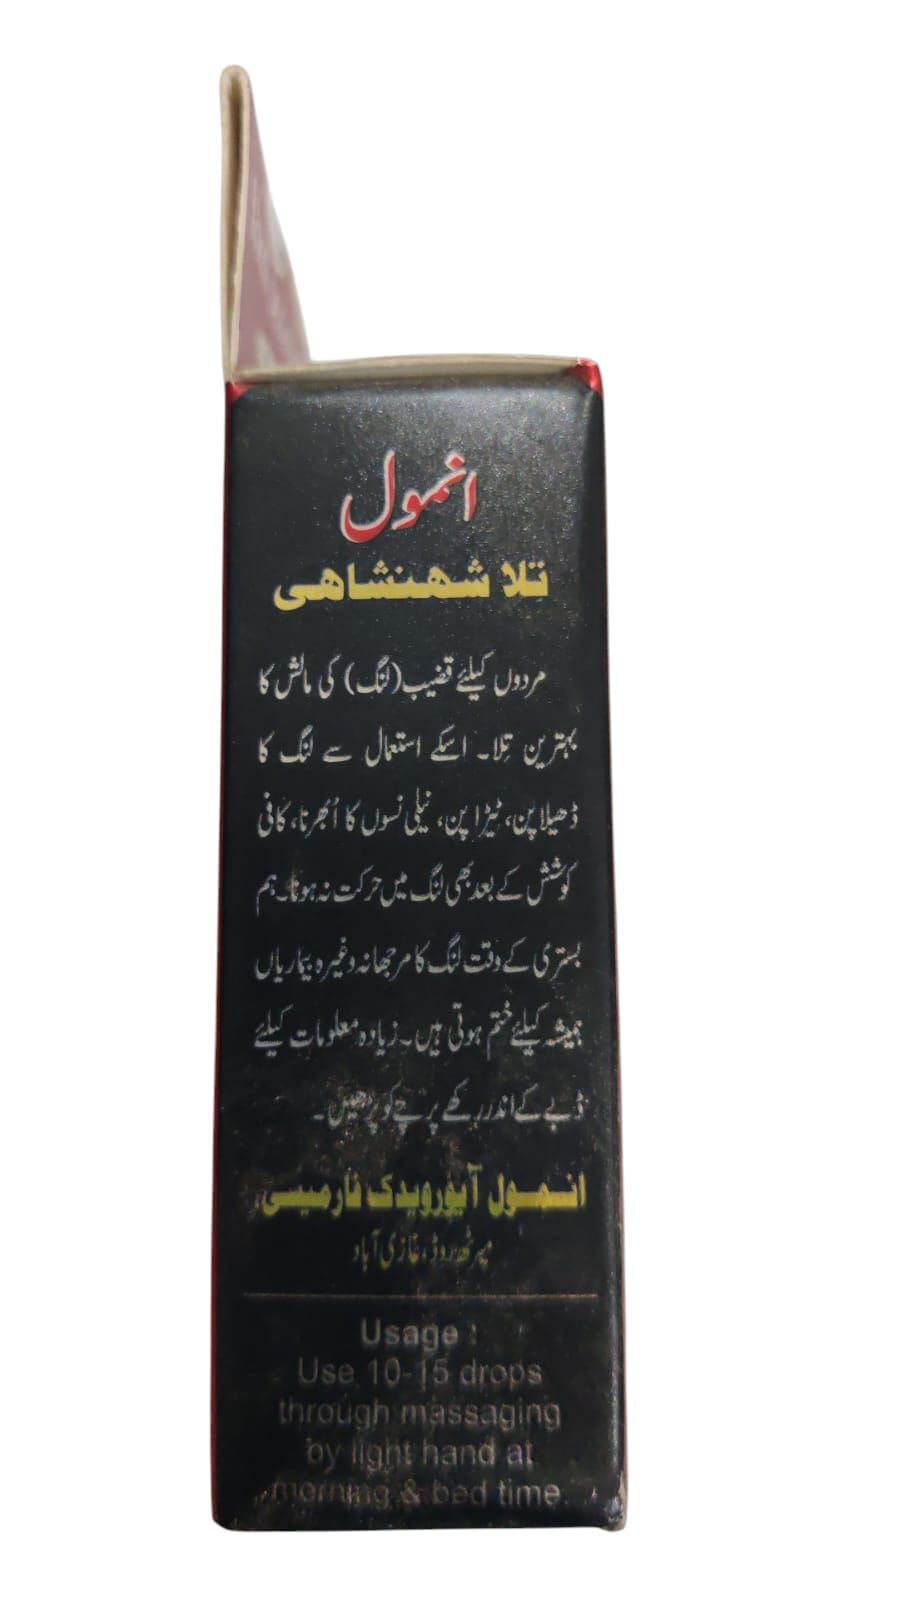 انمول
تِلا شهنشاهی
مردوں کیلئے قضیب(لنگ) کی مالش کا
بہترین تِلا۔ اسکے استعمال سے لنگ کا
ڈھیلاپن، ٹیڑاپن، نیلی نسوں کا اُبھرنا، کافی
کوشش کے بعد بھی لنگ میں حرکت نہ ہونا۔ ہم
بستری کے وقت لنگ کا مرجھانہ وغیرہ بیماریاں
ہمیشہ کیلئے ختم ہوتی ہیں۔ زیادہ معلومات کیلئے
ڈبے کے اندر رکھے پرچے کو پڑھیں۔
انمول آیورویدک فارمیسی،
میرٹھ روڈ، غازی آباد
Usage :
Use 10-15 drops
through massaging
by light hand at
morning & bed time